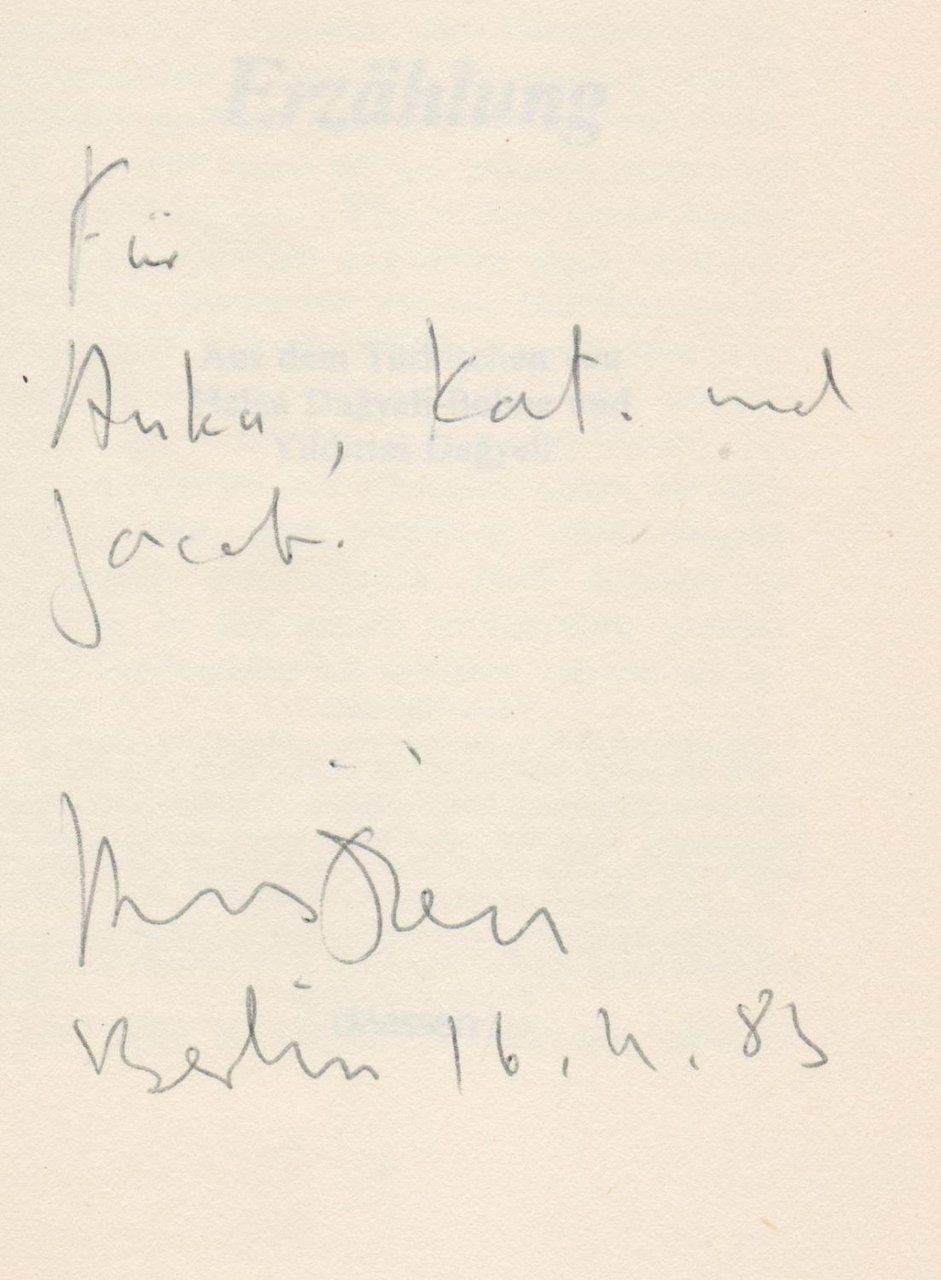 Erzählung
Für
Aus dem Türkischen von
Anka, Kat. und
Helga Dağyeli-Bohne und
Yıldırım Dağyeli
Jacob.
Aras Ören
Berlin 16. 11. 83